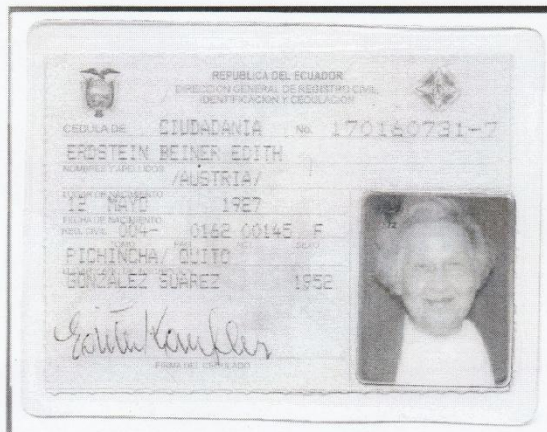 REPUBLICA DEL ECUADOR
DIRECCION GENERAL DE REGISTRO CIVIL,
IDENTIFICACION Y CEDULACION
CEDULA DE CIUDADANIA No. 170160731-7
ERDSTEIN BEINER EDITH
NOMBRES Y APELLIDOS
/AUSTRIA/
LUGAR DE NACIMIENTO
12 MAYO 1927
FECHA DE NACIMIENTO
REG. CIVIL 004- 0162 00145 F
TOMO PAG. ACT. SEXO
PICHINCHA/ QUITO
GONZALEZ SUAREZ 1952
Edith
FIRMA DEL CEDULADO